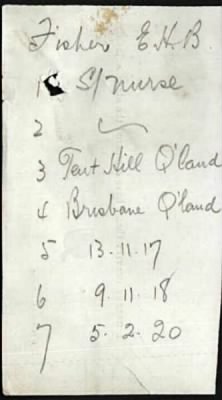 Fisher E.H.B.
1 S/Nurse
2 ~
3 Tent Hill Q'land
4 Brisbane Q'land
5 13.11.17
6 9.11.18
7 5.2.20